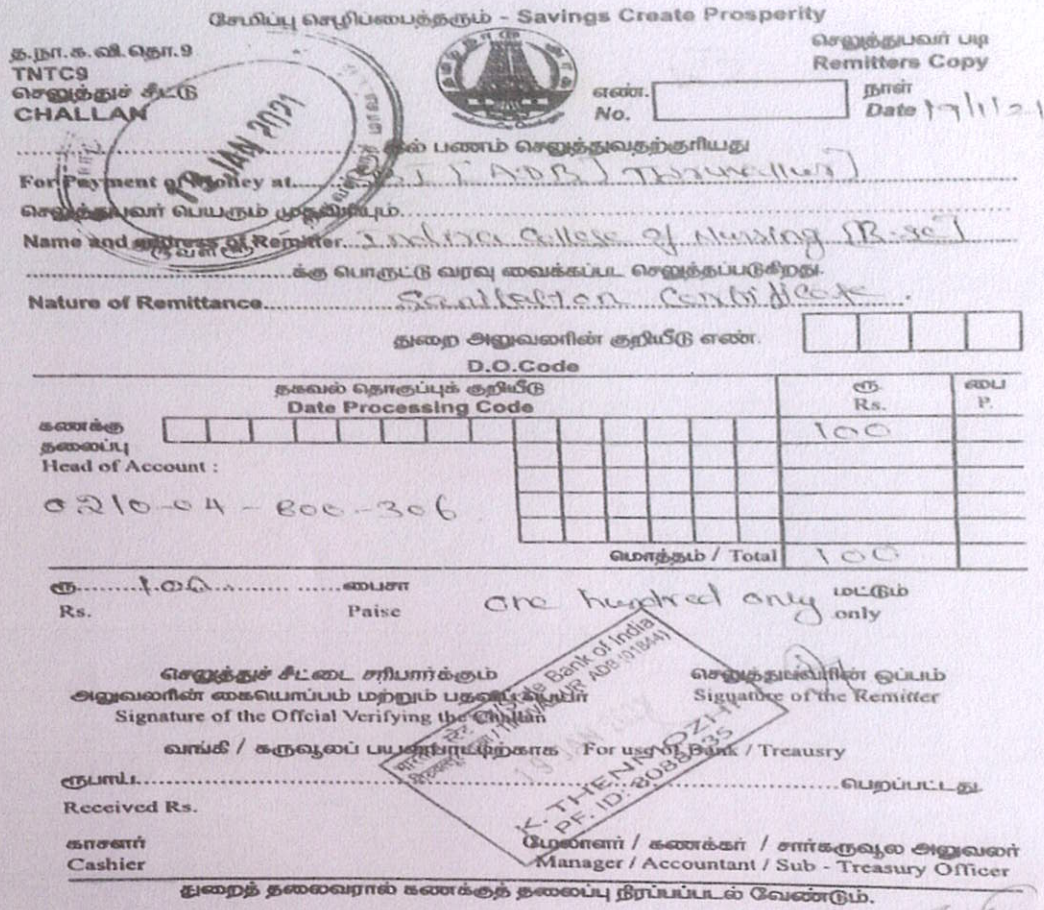 சேமிப்பு செழிப்பைத்தரும் - Savings Create Prosperity
த.நா.க.வி.தொ.9
TNTC9
செலுத்துச் சீட்டு
CHALLAN
செலுத்துபவர் படி
Remitters Copy
எண்.
No.
நாள்
Date 19/1/21
19 JAN 2021
இல் பணம் செலுத்துவதற்குரியது
For Payment of Money at ADB Thiruvallur
செலுத்துபவர் பெயரும் முகவரியும்
Name and address of Remitter Indira College of Nursing (B.sc)
க்கு பொருட்டு வரவு வைக்கப்பட செலுத்தப்படுகிறது.
Nature of Remittance
துறை அனுவலரின் குறியீடு எண்.
D.O.Code
தகவல் தொகுப்புக் குறியீடு
Date Processing Code
ரூ.
Rs.
பை
P.
கணக்கு
தலைப்பு
Head of Account :
100
0210-04-800-306
மொத்தம் / Total 100
ரூ 100 பைசா
Rs. Paise
one hundred only மட்டும்
only
செலுத்துச் சீட்டை சரிபார்க்கும்
அனுவலரின் கையொப்பம் மற்றும்
Signature of the Offcial Verifying the Challan
செலுத்துபவரின் ஒப்பம்
Signature of the Remitter
State Bank of India
TIRUVALLUR ADB (01844)
19 JAN
K. THENMOZHI
PF. ID: 8088435
வங்கி / கருவூலப் பயன்பாட்டிற்காக For use of Bank / Treausry
ரூபாய் பெறப்பட்டது.
Received Rs.
காசனர்
Cashier
மேலாளர் / கணக்கர் / சார்கருவூல அனுவலர்
Manager / Accountant / Sub - Treasury Officer
துறைத் தலைவரால் கணக்குத் தலைப்பு நிரப்பப்படல் வேண்டும்.